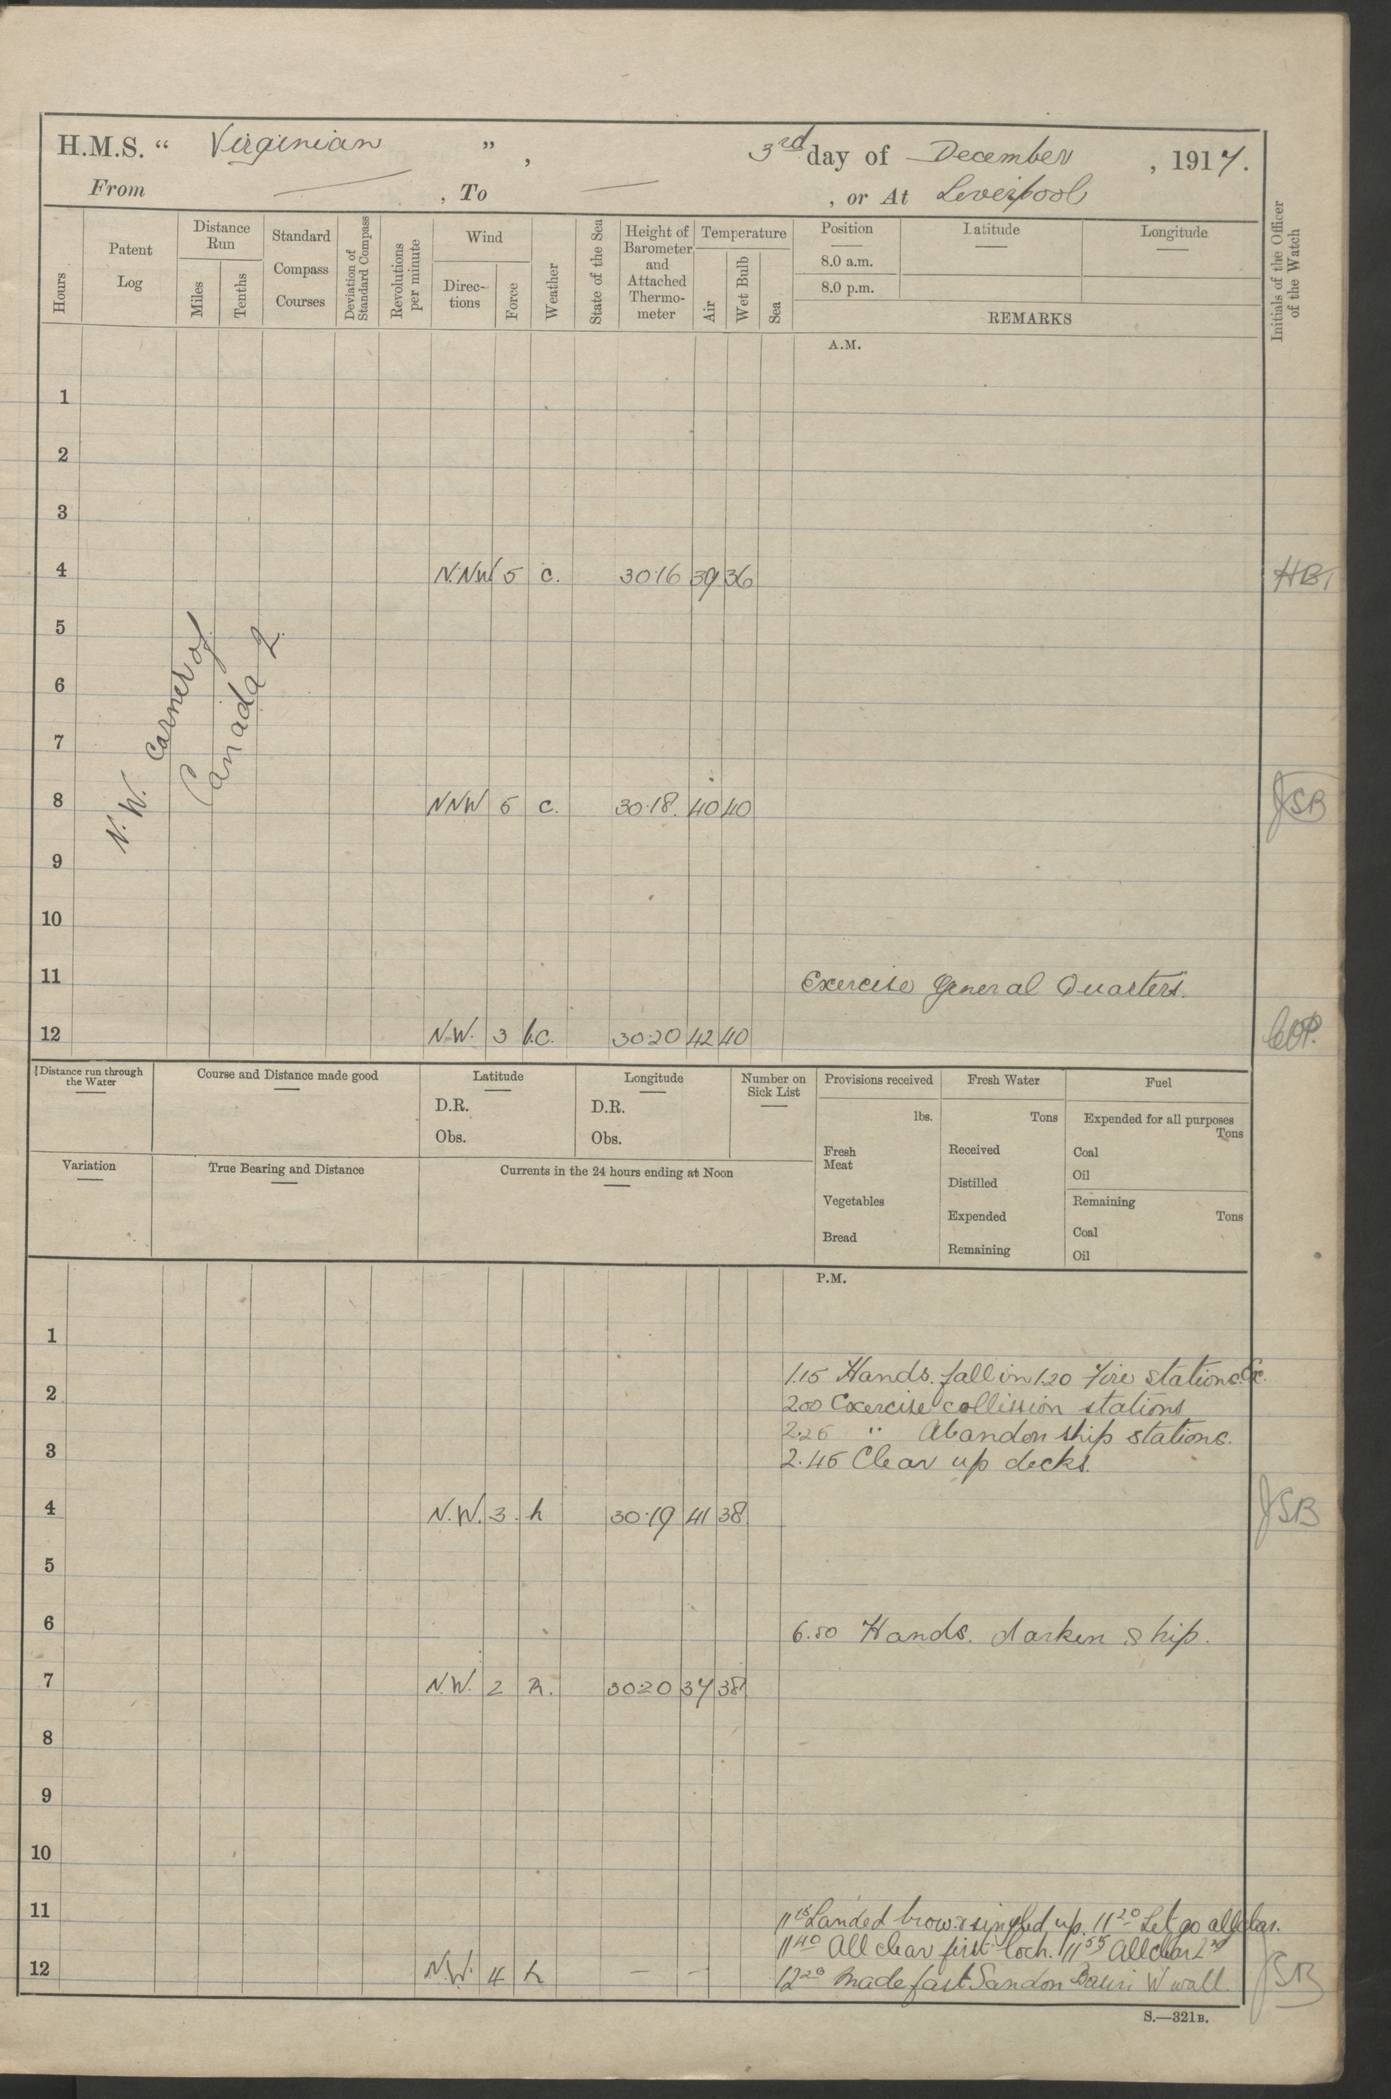 H.M.S. “ Virginian ” , 3rd day of December , 1917.
From — , To — , or At Liverpool
Hours
Patent Log
Distance Run
Miles
Tenths
Standard Compass Courses
Deviation of Standard Compass
Revolutions per minute
Wind
Direc-tions
Force
Weather
State of the Sea
Height of Barometer and Attached Thermo-meter
Temperature
Air
Wet Bulb
Sea
Position
8.0 a.m.
8.0 p.m.
Latitude
Longitude
REMARKS
Initials of the Officer of the Watch
A.M.
1
2
3
4 N.NW 5 c. 30.16 39 36
5
6
7
N.W. Corner of
Canada 2.
8 NNW 5 c. 30.18. 40 40 JSB
9
10
11 Exercise General Quarters.
12 N.W. 3 b.c. 30.20 42 40
Distance run through the Water
Course and Distance made good
Latitude
D.R.
Obs.
Longitude
D.R.
Obs.
Number on Sick List
Variation
True Bearing and Distance
Currents in the 24 hours ending at Noon
Provisions received
lbs.
Fresh Meat
Vegetables
Bread
Fresh Water
Tons
Received
Distilled
Expended
Remaining
Fuel
Expended for all purposes
Tons
Coal
Oil
Remaining
Tons
Coal
Oil
P.M.
1
1.15 Hands. fall in 1.20 Fire stations. &c.
2
2.00 Exercise collision stations
2.25 " Abandon ship stations.
3
2.45 Clear up decks.
4 N.W. 3. 30.19 41 38 JSB
5
6 6.50 Hands. darken ship.
7 N.W. 2 30.20 37 38
8
9
10
11
11 15 Landed brow & singled up. 11 20 Let go all
11 40 All clear first lock. 11 55 All clear 2nd
12 N.W. 4 — — 12 20 Made fast Sandon Basin W wall. JSB
S.—321B.